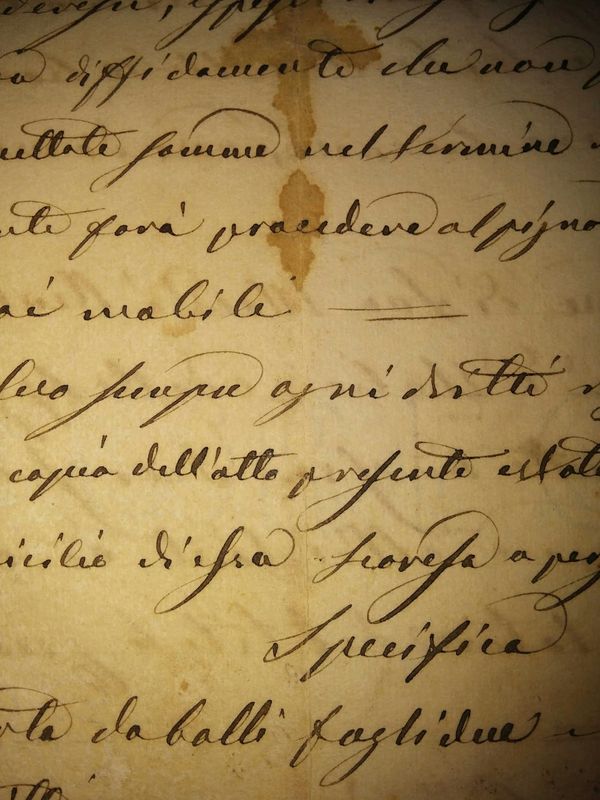 diffidamente che non
somme nel termine
farà procedere al pigno
mobili
sempre ogni dritti
copia dell'atto presente è stata
di essa a per
Specifica
da bolli fogli due